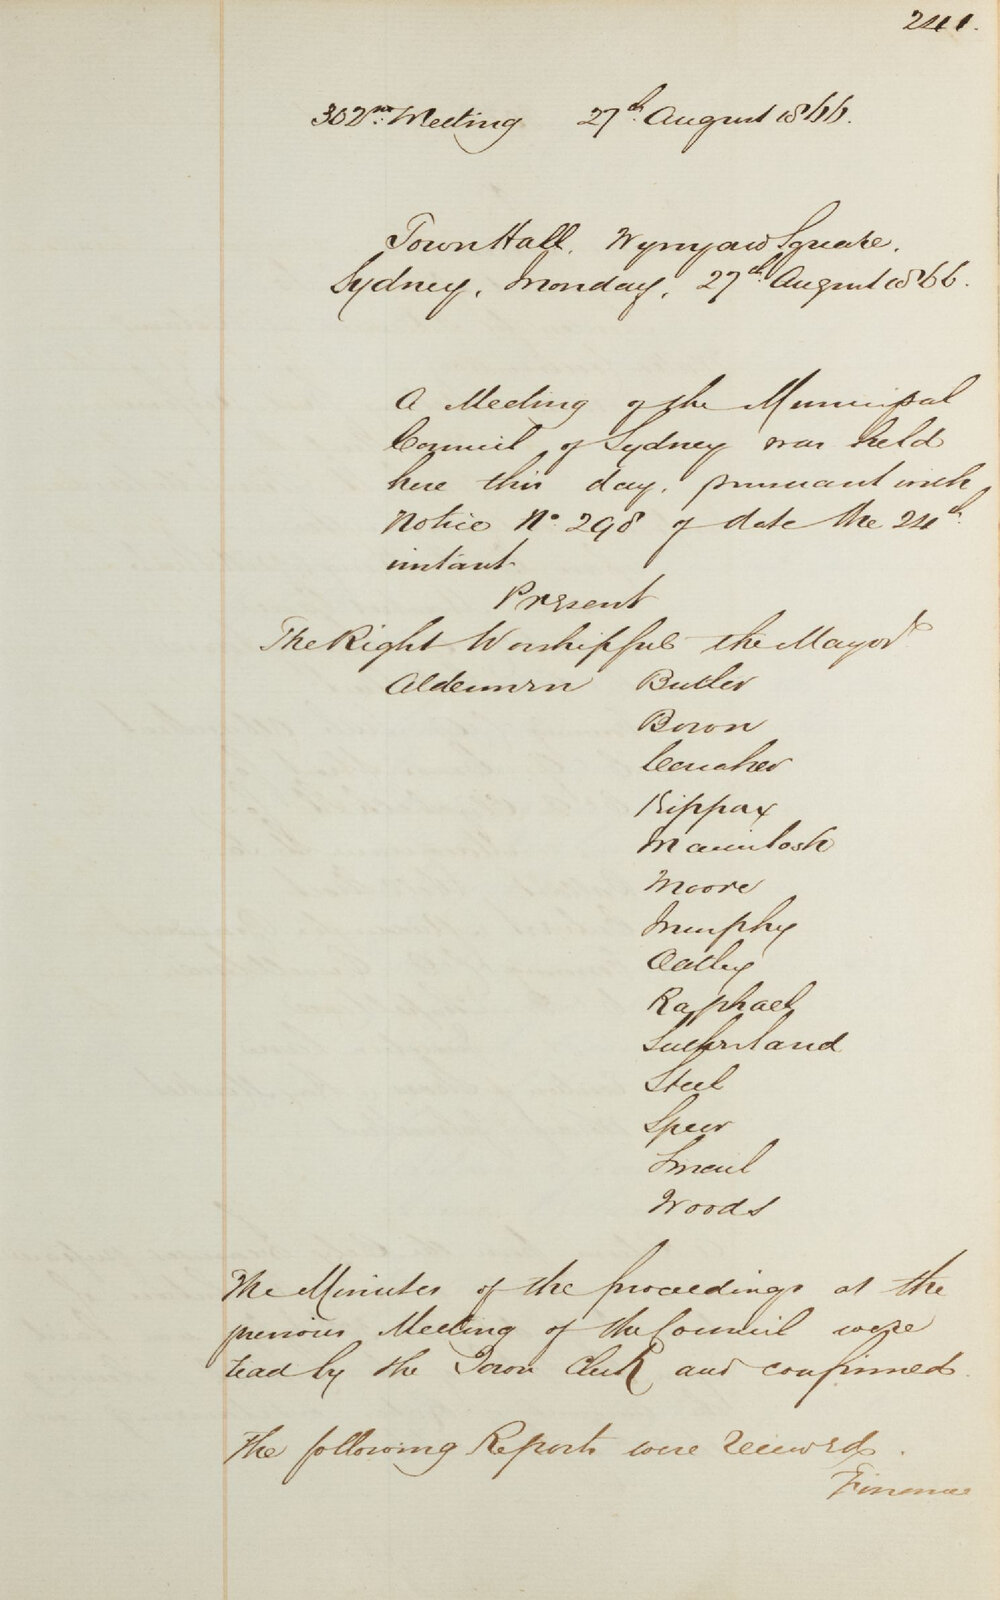 241.
302nd. Meeting 27th. August 1866.
Town Hall. Wynyard Square.
Sydney, Monday, 27th August 1866.
A Meeting of the Municipal
Council of Sydney was held
here this day, pursuant with
Notice No. 298 of date the 24th.
instant
Present
The Right Worshipful the Mayor
Aldermen Butler
Bown
Caraher
Kippax
Macintosh
Moore
Murphy
Oatley
Raphael
Sutherland
Steel
Speer
Smail
Woods
The Minutes of the proceedings at the
previous Meeting of the Council were
read by the Town Clerk and confirmed.
The following Reports were received.
Finance